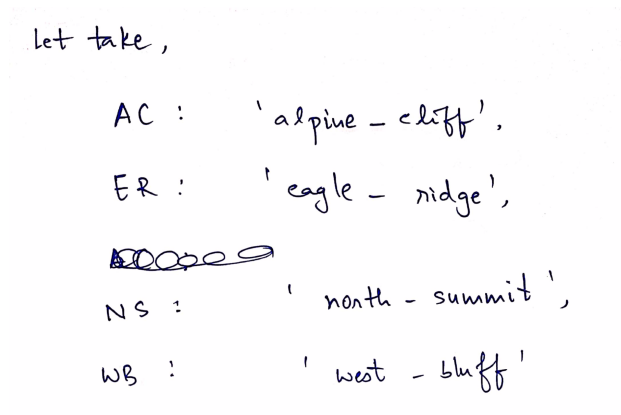 Let take,
AC : 'alpine - cliff',
ER : 'eagle - ridge',
NS : 'north - summit',
WB : 'west - bluff'